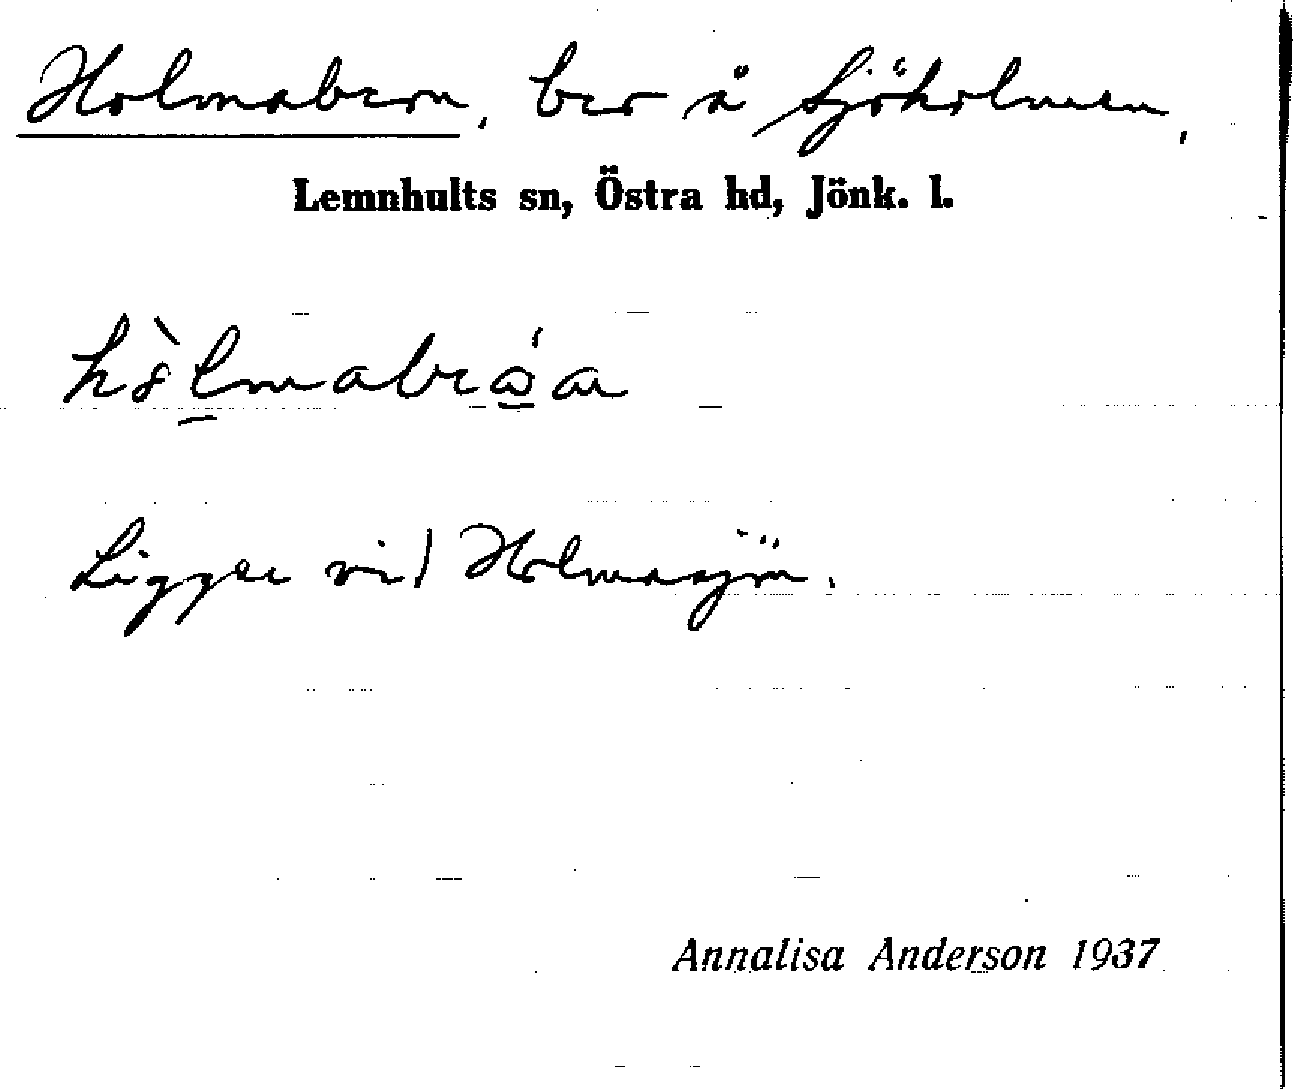 Holmabron, bro å Sjöholmen,
Lemnhults sn, Östra hd, Jönk. l.
Ligger vid Holmasjön.
Annalisa Anderson 1937